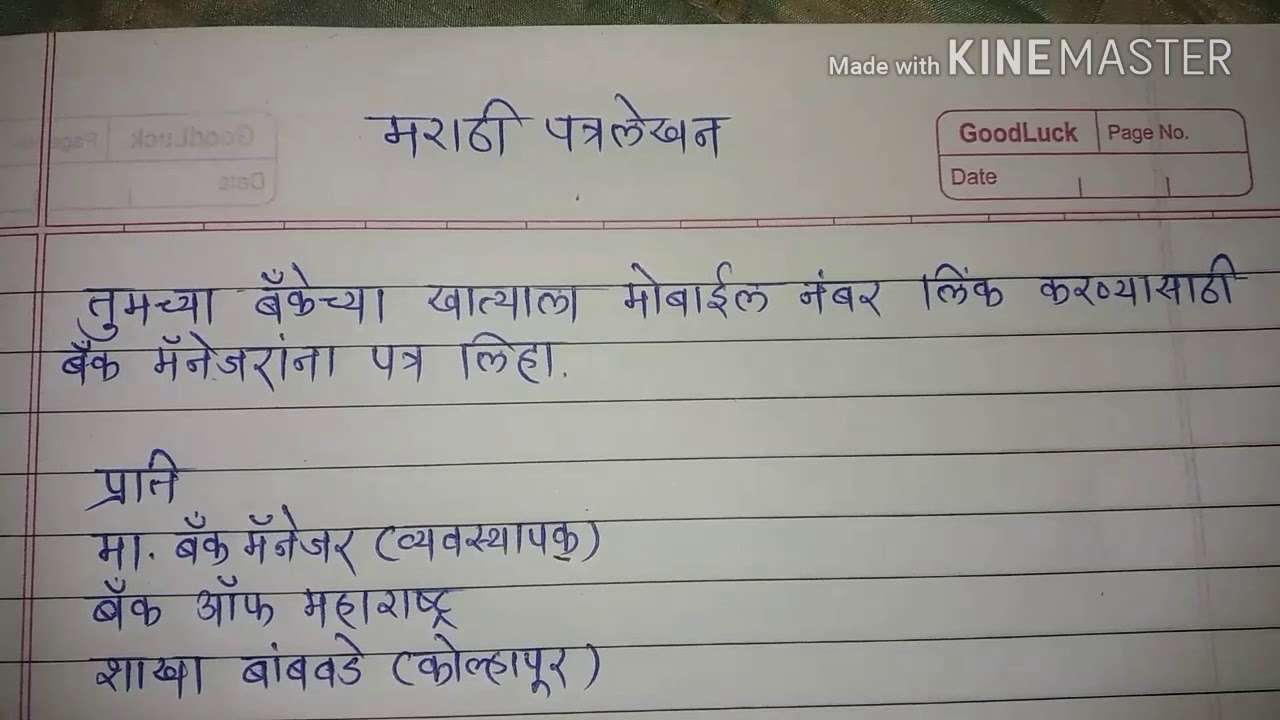 Made with KINEMASTER
मराठी पत्रलेखन
GoodLuck Page No.
Date
तुमच्या बँकेच्या खात्याला मोबाईल नंबर लिंक करण्यासाठी
बँक मॅनेजरांना पत्र लिहा.
प्रति
मा. बँक मॅनेजर (व्यवस्थापक)
बँक ऑफ महाराष्ट्र
शाखा बांबवडे (कोल्हापूर)